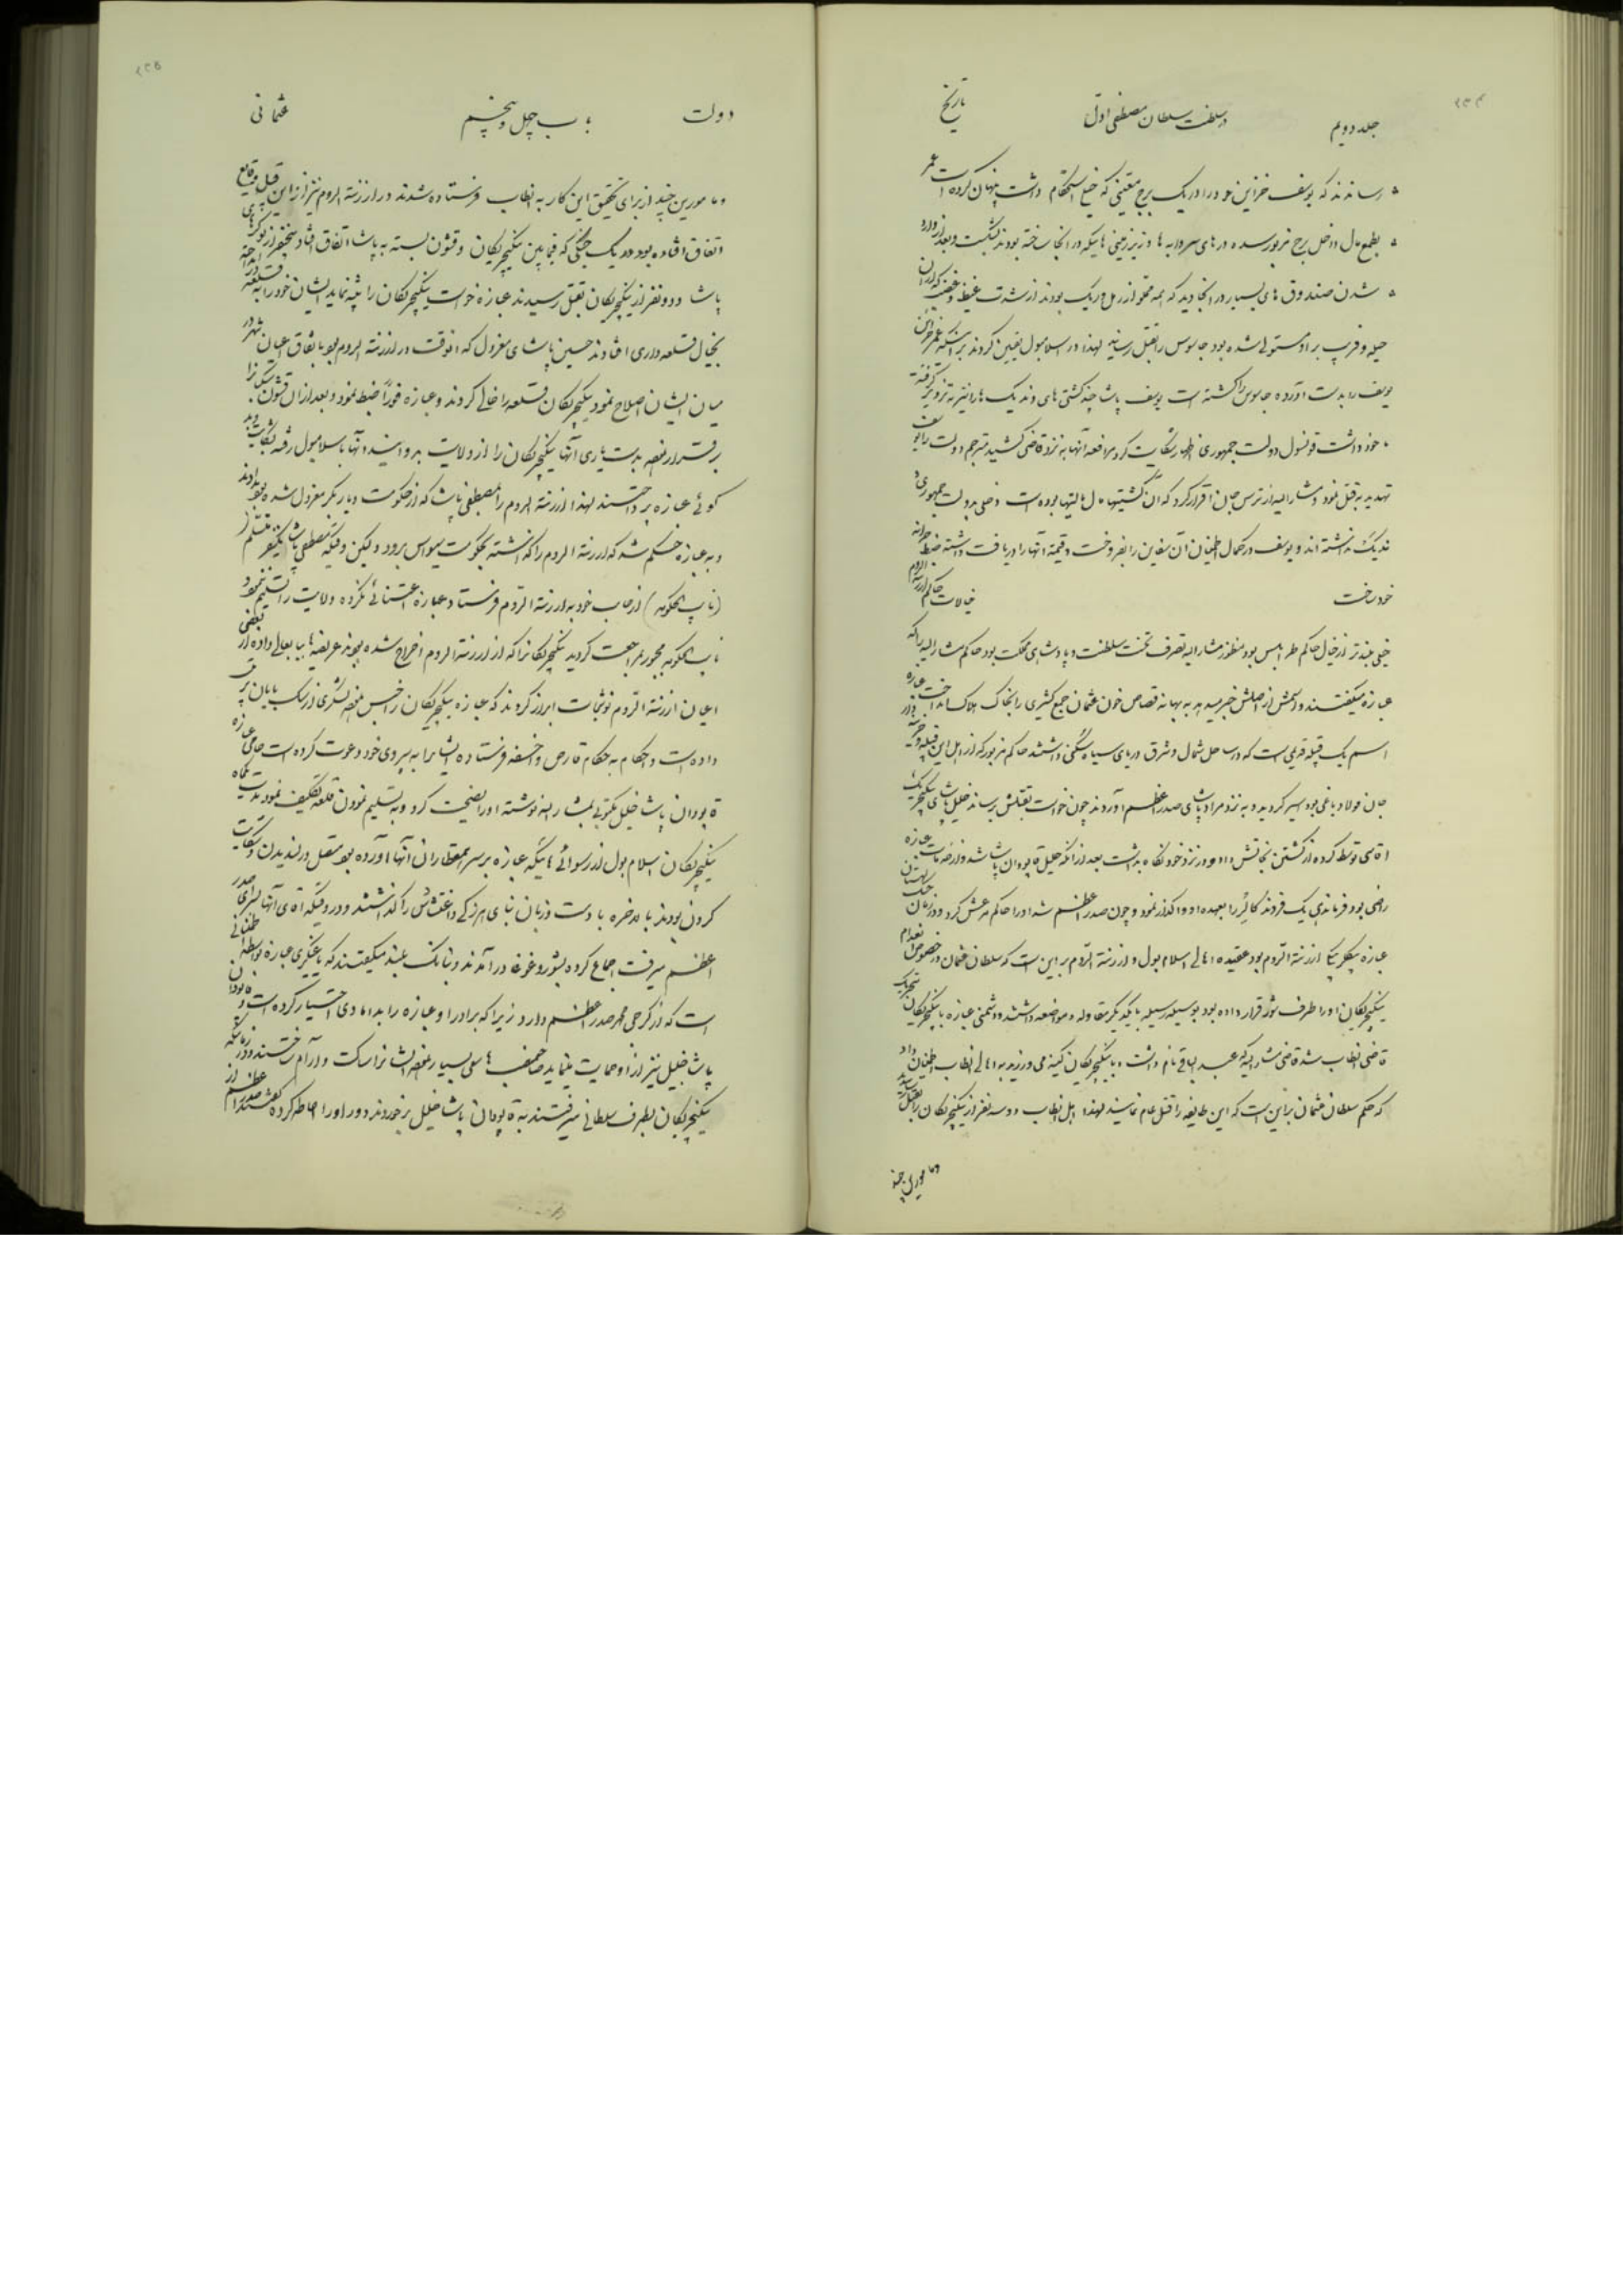 جلد دویم در سلطنت سلطان مصطفی اول تاریخ
رسانند که یوسف خزاین خود را در یک برج معینی که خیلی استحکام داشت پنهان کرده است
بطمع مال داخل برج مزبور شده در های سردابه ها و زیرزمینی هائیکه در آنجا ساخته بودند شکست و بعد از وارد
شدن صندوق های بسیار در آنجا دید که همه مملو از رمل و ریک بودند از شدت غیظ و غضب که از آن
حیله و فریب بر او مستولی شده بود جاسوس را بقتل رسانید لهذا در اسلامبول یقین کردند بر اینکه خزاین
یوسف را بدست آورده جاسوس را کشته است یوسف پاشا چند کشتی های وندیک ها را نیز به تزویر گرفته
خود داشت قونسول دولت جمهوری اظهار شکایت کرد مرافعه آنها به نزد قاضی کشید مترجم دولت را
تهدید به قتل نمود و مشار الیه از ترس جان اقرار کرد که آن کشتیها مال بوده است و دخلی بدولت جمهوری
ندیک نداشته اند و یوسف در کمال اطمینان آن سفاین را بفروخت و قیمة آنها را دریافت داشته ضبط
خود ساخت خیالات حاکم ارزنة الروم
خیلی بلندتر از خیال حاکم طرابلس بود منظور مشار الیه تصرف تخت سلطنت و پادشاهی مملکت بود حاکم مشار الیه را که
عبازه میگفتند و اسمش از اصلش خبر میدهد به بهانه قصاص خون عثمان جمع کثیری را بخاک هلاک انداخت عبازه
اسم یک قبیله قدیمی است که در ساحل شمال و شرق دریای سیاه سکنی داشتند حاکم مزبور که از اهل این قبیله
جان فولاد باغی بود اسیر گردید و به نزد مراد پاشای صدر اعظم آوردند چون خواست بقتلش برساند خلیل پاشای ینگیچری
اقاسی توسط کرده از کشتن نجاتش داد و در نزد خود نگاه بداشت بعد از آنکه خلیل قاپودان پاشا شد و از خدمات عبازه
راضی بود فرماندهی یک فروند را بعهده او واگذار نمود و چون صدر اعظم شد او را حاکم مرعش کرد و در زمان جنک لهستان
عبازه بیگلربیگی ارزنة الروم بود عقیده اهالی اسلامبول و ارزنة الروم بر این است که سلطان عثمان در خصوص انعدام
ینگیچریگان او را طرف شور قرار داده بود بوسیله رسیله با یکدیگر مقاوله و مواضعه داشتند و دشمنی عبازه با ینگیچریگان بتحریک
قاضی انطاب شد قاضی مشار الیه که عبد الباقی نام داشت و با ینگیچریگان کینه می ورزید به اهالی انطاب اطمینان داد
که حکم سلطان عثمان بر این است که این طایفه را قتل عام نمایند لهذا اهل انطاب دو سه نفر از ینگیچریگان را بقتل
و مامورین چند
دولت باب چهل و پنجم عثمانی
و مامورین چند از برای تحقیق این کار به انطاب فرستاده شدند در ارزنة الروم نیز از این قبیل وقایع
اتفاق افتاده بود در یک جنگی که فیما بین ینگیچریگان و قشون بسته به پاشا اتفاق افتاد پنجنفر از نوکرهای
پاشا و دو نفر از ینگیچریگان بقتل رسیدند عبازه خواست ینگیچریگان را تنبیه نماید ایشان خود را به قلعه
بخیال قلعه داری افتادند حسین پاشای معزول که آنوقت در ارزنة الروم بود باتفاق اعیان شهر
میان ایشان اصلاح نمود ینگیچریگان قلعه را خالی کردند و عبازه فورا ضبط نمود و بعد از آن قشون
برقرار نموده بدستیاری آنها ینگیچریگان را از ولایت بیرون و آنها باسلامبول رفته بشکایت
گوئی عبازه پرداختند لهذا ارزنة الروم را بمصطفی پاشا که از حکومت دیاربکر معزول شده بود دادند
و به عبازه حکم شد که ارزنة الروم را گذاشته بحکومت سیواس برود ولیکن وقتیکه مصطفی پاشا یکنفر متسلم
(نایب الحکومه) از جانب خود به ارزنة الروم فرستاد عبازه اعتنائی نکرده ولایت را تسلیم ننمود
نایب الحکومه مجبور بمراجعت گردید ینگیچریگانرا که از ارزنة الروم اخراج شده بودند عریضه ها ببابعالی داده از بعضی
اعیان ارزنة الروم نوشتجات ابراز کردند که عبازه ینگیچریگان را حبس نموده
داده است و احکام به حکام قارص و اخسقه فرستاده ایشانرا به پیروی خود دعوت کرده است حامی عبازه
قاپودان پاشا خلیل مکتوبی بمشار الیه نوشته او را نصیحت کرد و به تسلیم نمودن قلعه تکلیف نمود
ینگیچریگان اسلامبول از رسوائی هائیکه عبازه بر سر همقطاران آنها آورده بود متصل در لندیدن و شکایت
کردن بودند بالاخره با دست و زبان بنای هرزگی و اغتشاش را گذاشتند و در وقتیکه آقای آنها بسرای صدر
اعظم میرفت اجماع کرده بشور و غوغا درآمدند و ببانک بلند میگفتند که یاغیگری عبازه بواسطه
است که از گرجی محمد صدر اعظم دارد زیرا که برادر او عبازه را بدامادی اختیار کرده است و قاپودان
پاشا خلیل نیز از او حمایت مینماید سعی بسیار نموده ایشانرا ساکت و آرام ساختند و در زمانیکه
ینگیچریگان بطرف سلطانی میرفتند به قاپودان پاشا خلیل برخوردند دور او را احاطه کرده گفتند صدر اعظم از